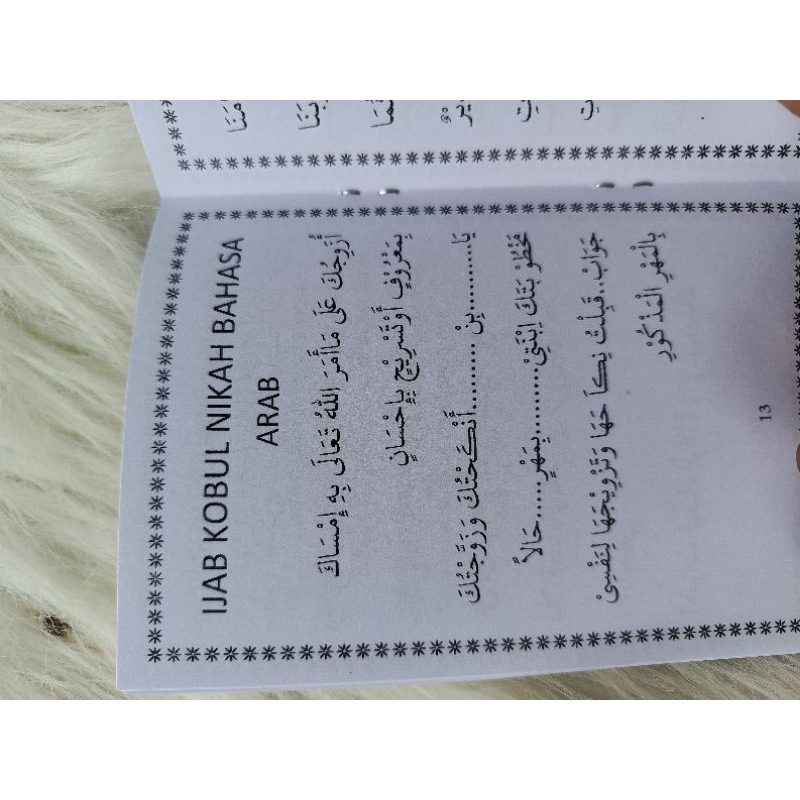 IJAB KOBUL NIKAH BAHASA
ARAB
أُزَوِّجُكَ عَلَى مَاأَمَرَ اللهُ تَعَالَى بِهِ إِمْسَاكَ
بِمَعْرُوْفٍ أَوْتَسْرِيْحٍ بِإِحْسَانٍ
يَا..........بِنْ ..........أَنْكَحْتُكَ وَزَوَّجْتُكَ
مَخْطُوْبَتَكَ اِبْنَتِيْ..........بِمَهْرٍ.....حَالاً
جَوَابْ..قَبِلْتُ نِكَاحَهَا وَتَزْوِيْجَهَا لِنَفْسِيْ
بِالْمَهْرِ الْمَذْكُوْرِ
13